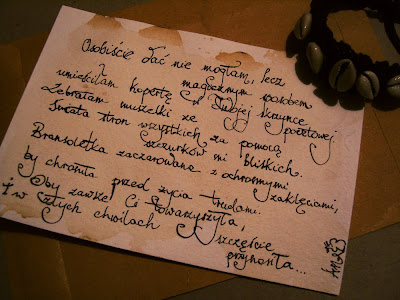 Osobiście dać nie mogłam, lecz
z magicznym sposobem
umieściłam kopertę w Twojej skrzynce pocztowej
Zebrałam muszelki ze
świata stron wszystkich za pomocą
sznurków mi bliskich.
Bransoletka zaczarowana z ochronnymi zaklęciami,
by chroniła przed życia trudami.
Oby zawsze Ci towarzyszyła,
i w złych chwilach szczęście
przynosiła...